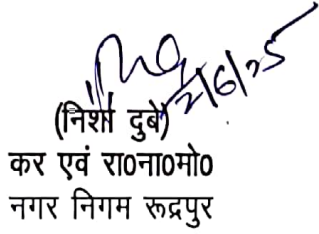 2/6/25
(निशा दुबे)
कर एवं रा0ना0मो0
नगर निगम रूद्रपुर